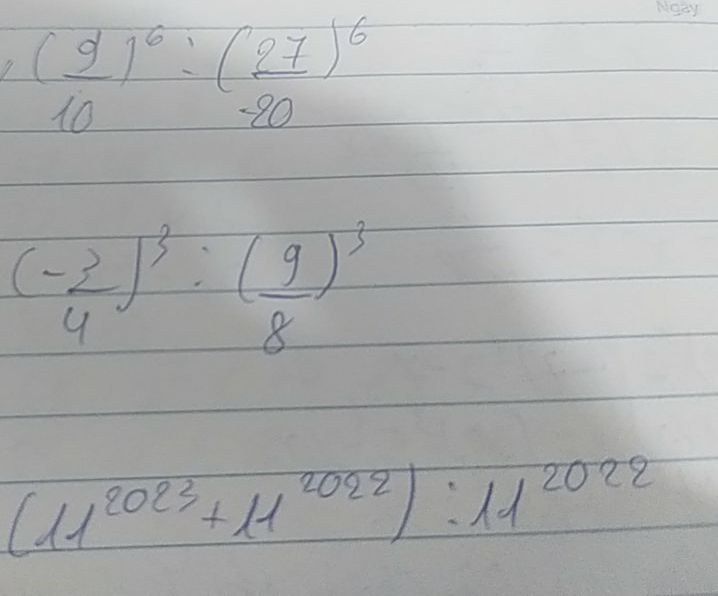 Ngày
(9/10)^6 : (27/-20)^6
(-3/4)^3 : (9/8)^3
(11^2023 + 11^2022) : 11^2022